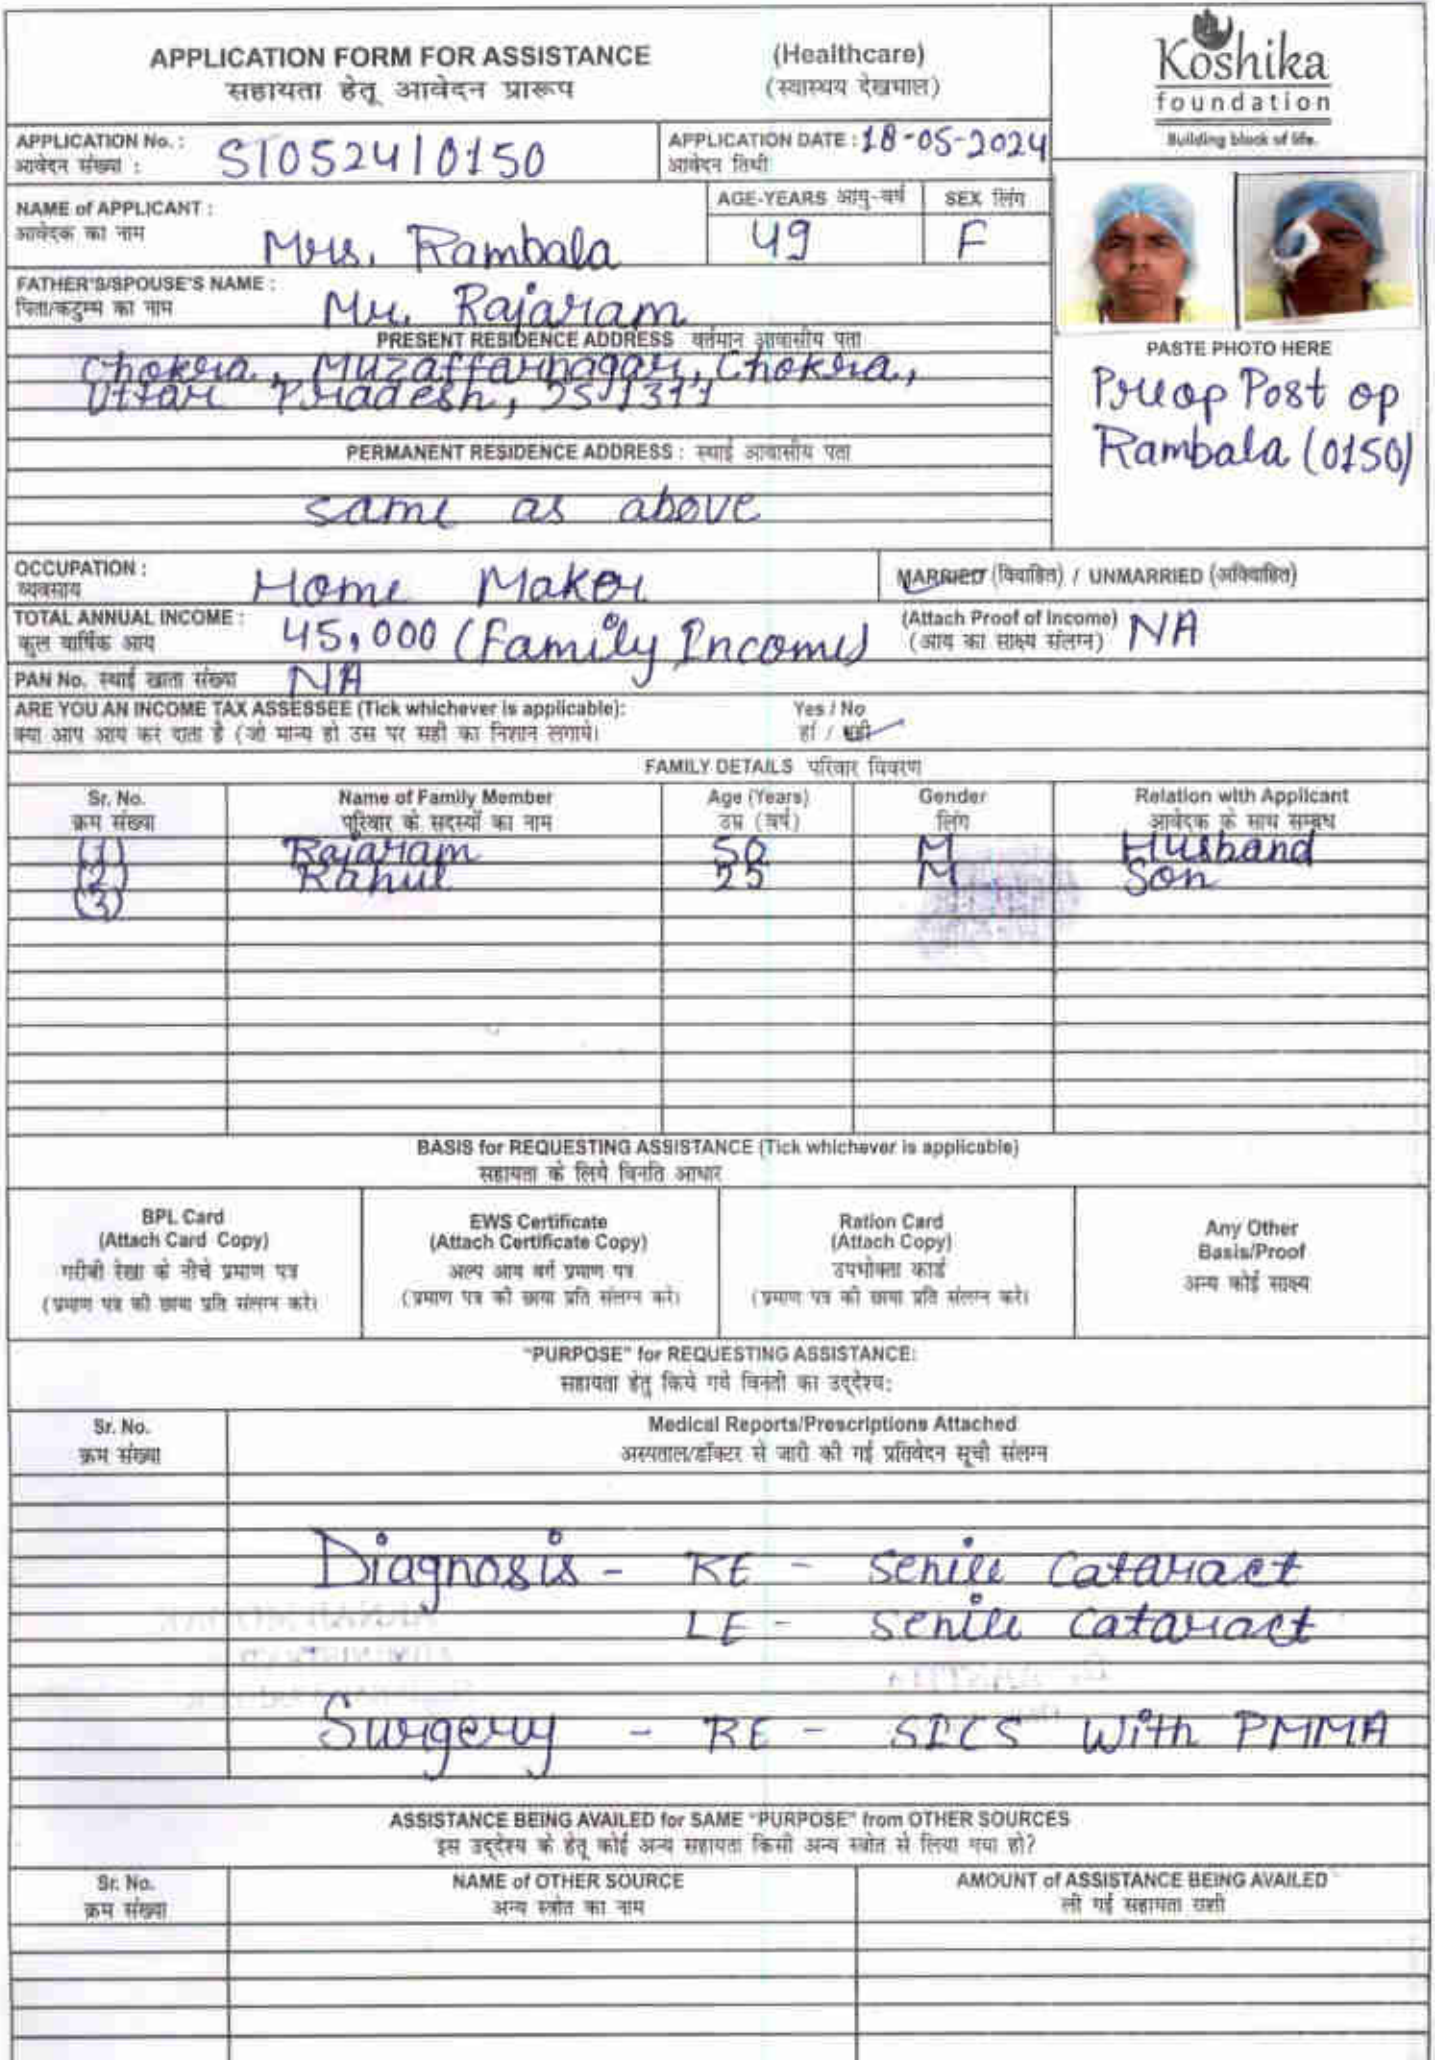 APPLICATION FORM FOR ASSISTANCE (Healthcare)
सहायता हेतू आवेदन प्रारूप (स्वास्थय देखभाल)
Koshika
foundation
Building block of life.
APPLICATION No. : ST0524/0150 APPLICATION DATE : 18-05-2024
आवेदन संख्या : आवेदन तिथी
NAME of APPLICANT : AGE-YEARS आयु-वर्ष SEX लिंग
आवेदक का नाम Mrs. Rambala 49 F
FATHER'S/SPOUSE'S NAME :
पिता/कटुम्ब का नाम Mr. Rajaram
PRESENT RESIDENCE ADDRESS वर्तमान आवासीय पता
Chokra, Muzaffarnagar, Chokra,
Uttar Pradesh, 251311
PASTE PHOTO HERE
Preop Post op
Rambala (0150)
PERMANENT RESIDENCE ADDRESS : स्थाई आवासीय पता
same as above
OCCUPATION : Home Maker MARRIED (विवाहित) / UNMARRIED (अविवाहित)
व्यवसाय
TOTAL ANNUAL INCOME : 45,000 (Family Income) (Attach Proof of Income) NA
कुल वार्षिक आय (आय का साक्ष्य संलग्न)
PAN No. स्थाई खाता संख्या NA
ARE YOU AN INCOME TAX ASSESSEE (Tick whichever is applicable): Yes / No
क्या आप आय कर दाता है (जो मान्य हो उस पर सही का निशान लगाये। हां / नहीं
FAMILY DETAILS परिवार विवरण
Sr. No. Name of Family Member Age (Years) Gender Relation with Applicant
क्रम संख्या परिवार के सदस्यों का नाम उम्र (वर्ष) लिंग आवेदक के साथ सम्बंध
(1) Rajaram 50 M Husband
(2) Rahul 25 M Son
(3)
BASIS for REQUESTING ASSISTANCE (Tick whichever is applicable)
सहायता के लिये विनति आधार
BPL Card
(Attach Card Copy)
गरीबी रेखा के नीचे प्रमाण पत्र
(प्रमाण पत्र की छाया प्रति संलग्न करे।
EWS Certificate
(Attach Certificate Copy)
अल्प आय वर्ग प्रमाण पत्र
(प्रमाण पत्र की छाया प्रति संलग्न करे।
Ration Card
(Attach Copy)
उपभोक्ता कार्ड
(प्रमाण पत्र की छाया प्रति संलग्न करे।
Any Other
Basis/Proof
अन्य कोई साक्ष्य
"PURPOSE" for REQUESTING ASSISTANCE:
सहायता हेतु किये गये विनती का उद्देश्य:
Sr. No. Medical Reports/Prescriptions Attached
क्रम संख्या अस्पताल/डॉक्टर से जारी की गई प्रतिवेदन सूची संलग्न
Diagnosis - RE - Senile Cataract
LE - Senile Cataract
Surgery - RE - SICS With PMMA
ASSISTANCE BEING AVAILED for SAME "PURPOSE" from OTHER SOURCES
इस उद्देश्य के हेतू कोई अन्य सहायता किसी अन्य स्त्रोत से लिया गया हो?
Sr. No. NAME of OTHER SOURCE AMOUNT of ASSISTANCE BEING AVAILED
क्रम संख्या अन्य स्त्रोत का नाम ली गई सहायता राशी